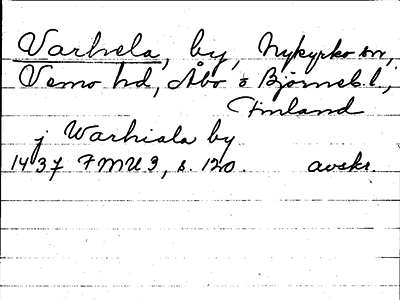 Varhela, by, Nykyrko sn,
Vemo hd, Åbo o Bjørneb. l,
Finland
j Warhiala by
1437 FMU 3, s. 120. avskr.